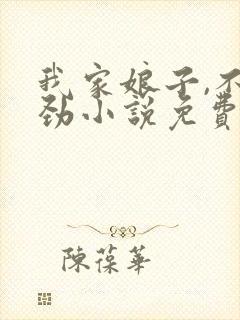 我家娘子,不
劲小說免費
陳葆華